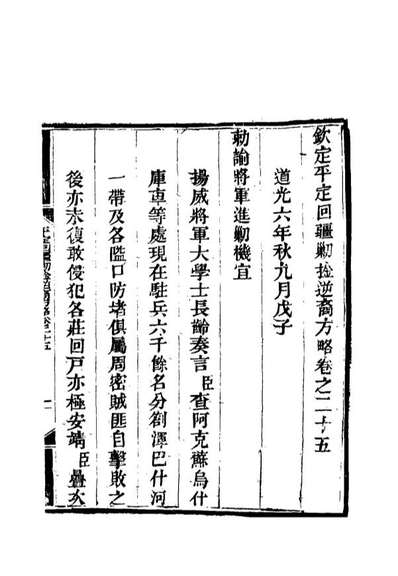 欽定平定回疆勦擒逆裔方略卷之二十五
道光六年秋九月戊子
勅諭將軍進勦機宜
揚威將軍大學士長齡奏言臣查阿克蘇烏什
庫車等處現在駐兵六千餘名分劄渾巴什河
一帶及各隘口防堵俱屬周密賊匪自擊敗之
後亦未復敢侵犯各莊回戸亦極安靖臣疊次